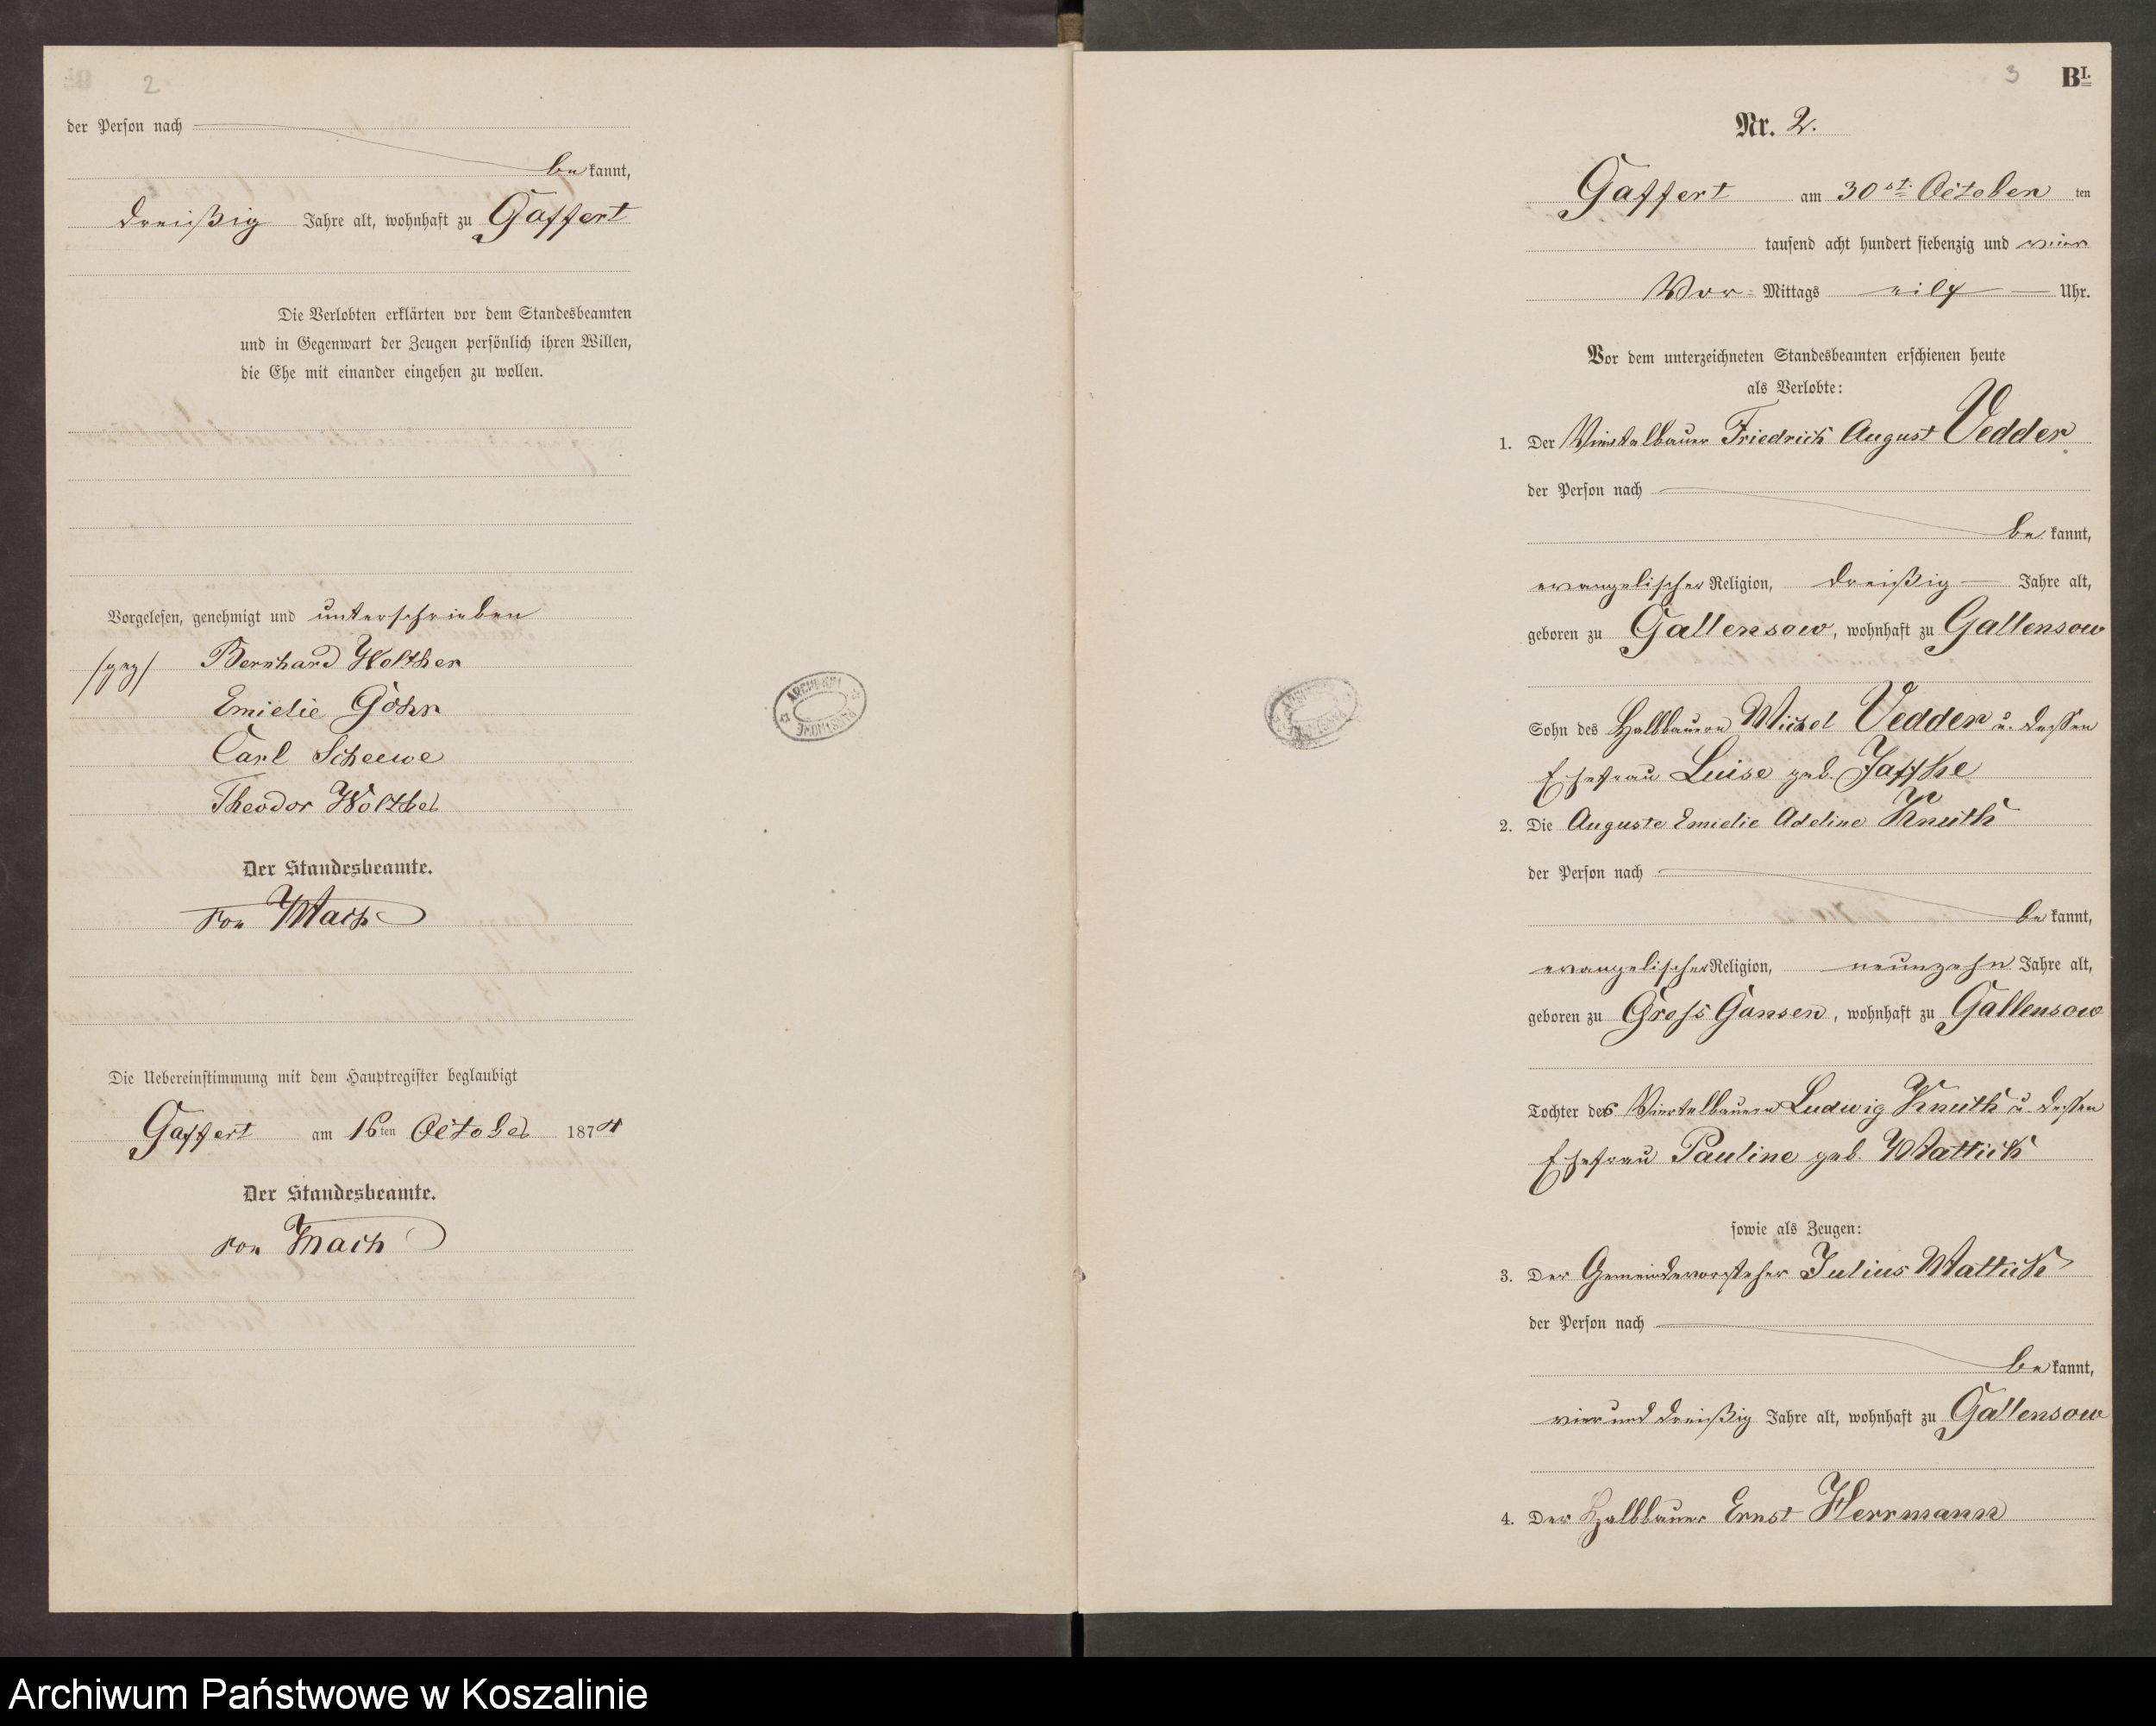 2
der Person nach
bekannt,
dreißig Jahre alt, wohnhaft zu Gaffert
Die Verlobten erklärten vor dem Standesbeamten
und in Gegenwart der Zeugen persönlich ihren Willen,
die Ehe mit einander eingehen zu wollen.
Vorgelesen, genehmigt und unterschrieben
/gez/ Bernhard Wolther
Emielie Göhr
Carl Scheewe
Theodor Wolther
Der Standesbeamte.
von Mach
Die Uebereinstimmung mit dem Hauptregister beglaubigt
Gaffert am 16ten October 1874
Der Standesbeamte.
von Mach
3
B I.
Nr. 2.
Gaffert am 30st October ten
tausend acht hundert siebenzig und vier
Vor-Mittags eilf Uhr.
Vor dem unterzeichneten Standesbeamten erschienen heute
als Verlobte:
1. Der Viertelbauer Friedrich August Vedder
der Person nach
bekannt,
evangelischer Religion, dreißig Jahre alt,
geboren zu Gallensow, wohnhaft zu Gallensow
Sohn des Halbbauern Michel Vedder u. dessen
Ehefrau Luise geb. Jaffke
2. Die Auguste Emielie Adeline Knuth
der Person nach
bekannt,
evangelischer Religion, neunzehn Jahre alt,
geboren zu Gross Gansen, wohnhaft zu Gallensow
Tochter des Viertelbauern Ludwig Knuth u. dessen
Ehefrau Pauline geb. Mattick
sowie als Zeugen:
3. Der Gemeindevorsteher Julius Mattick
der Person nach
bekannt,
vier und dreißig Jahre alt, wohnhaft zu Gallensow
4. Der Halbbauer Ernst Herrmann
Archiwum Państwowe w Koszalinie